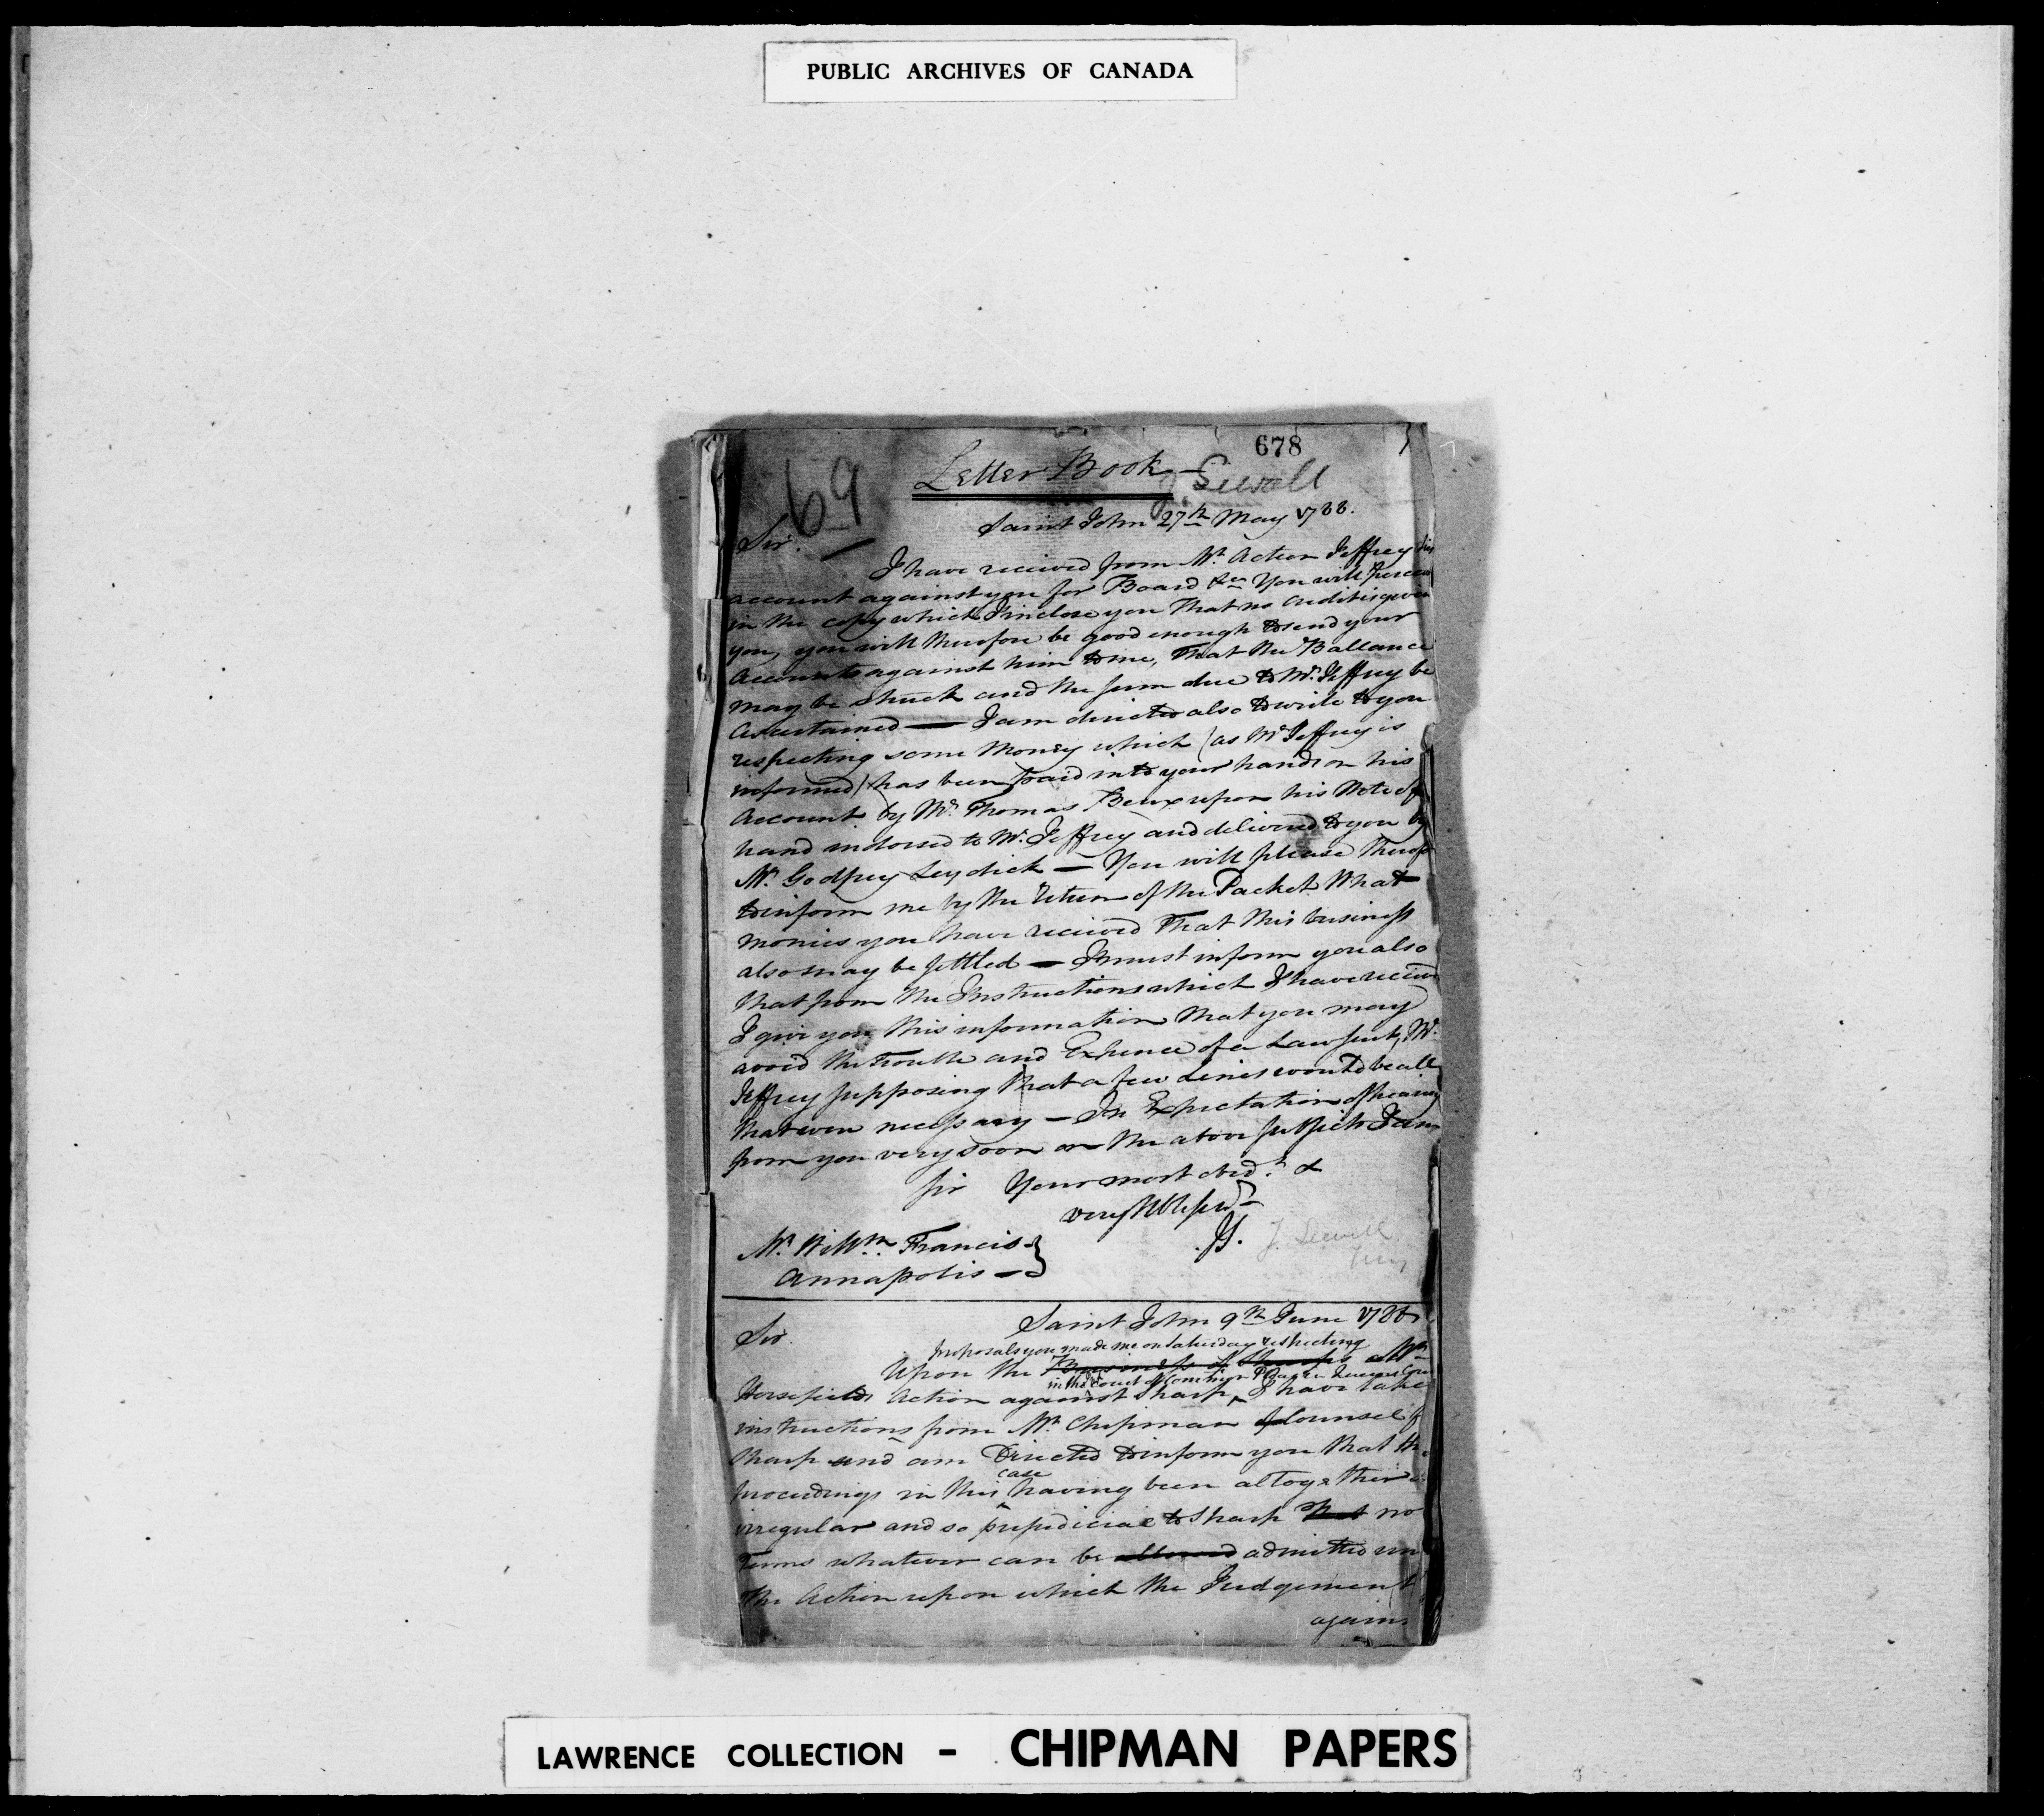 PUBLIC ARCHIVES OF CANADA
678
69
Letter Book
J. Sewell
Saint John 27th May 1788.
Sir.
I have received from Mr. Acteon Jeffrey his
account against you for Board &ca You will perceive
in the copy which I inclose you That no Credit is given
you, you will therefore be good enough to send your
Accounts against him to me, That the Ballance
may be struck and the sum due to Mr. Jeffrey be
Ascertained — I am directed also to write to you
respecting some Money which (as Mr Jeffrey is
informed) has been paid into your hands on his
Account by Mr. Thomas upon his Note of
hand indorsed to Mr. Jeffrey and delivered to you by
Mr. Godfrey Leydick — You will please
to inform me by the return of the Packet What
monies you have received That this business
also may be settled — I must inform you also
that from the Instructions which I have received
I give you this information that you may
avoid the trouble and Expence of a Law suit, Mr.
Jeffrey supposing that a few Lines would be all
that were necessary — In Expectation of hearing
from you very soon on the above subjects I am
Sir Your most obedt. &
very Hble servt
J. Sewell
Mr. Willm. Francis
Annapolis —
Saint John 9th June 1788
Sir.
proposals you made me on Saturday respecting
Upon the Business of Sharp's
in the Court of Common Pleas in Queens
Horsefield's Action against Sharp, I have take
instructions from Mr. Chipman of Counsel f
Sharp and am Directed to inform you that the
case
proceedings in this having been altogether
irregular and so prejudicial to Sharp that no
Terms whatever can be allowed admitted
the Action upon which the Judgement
agains
LAWRENCE COLLECTION - CHIPMAN PAPERS